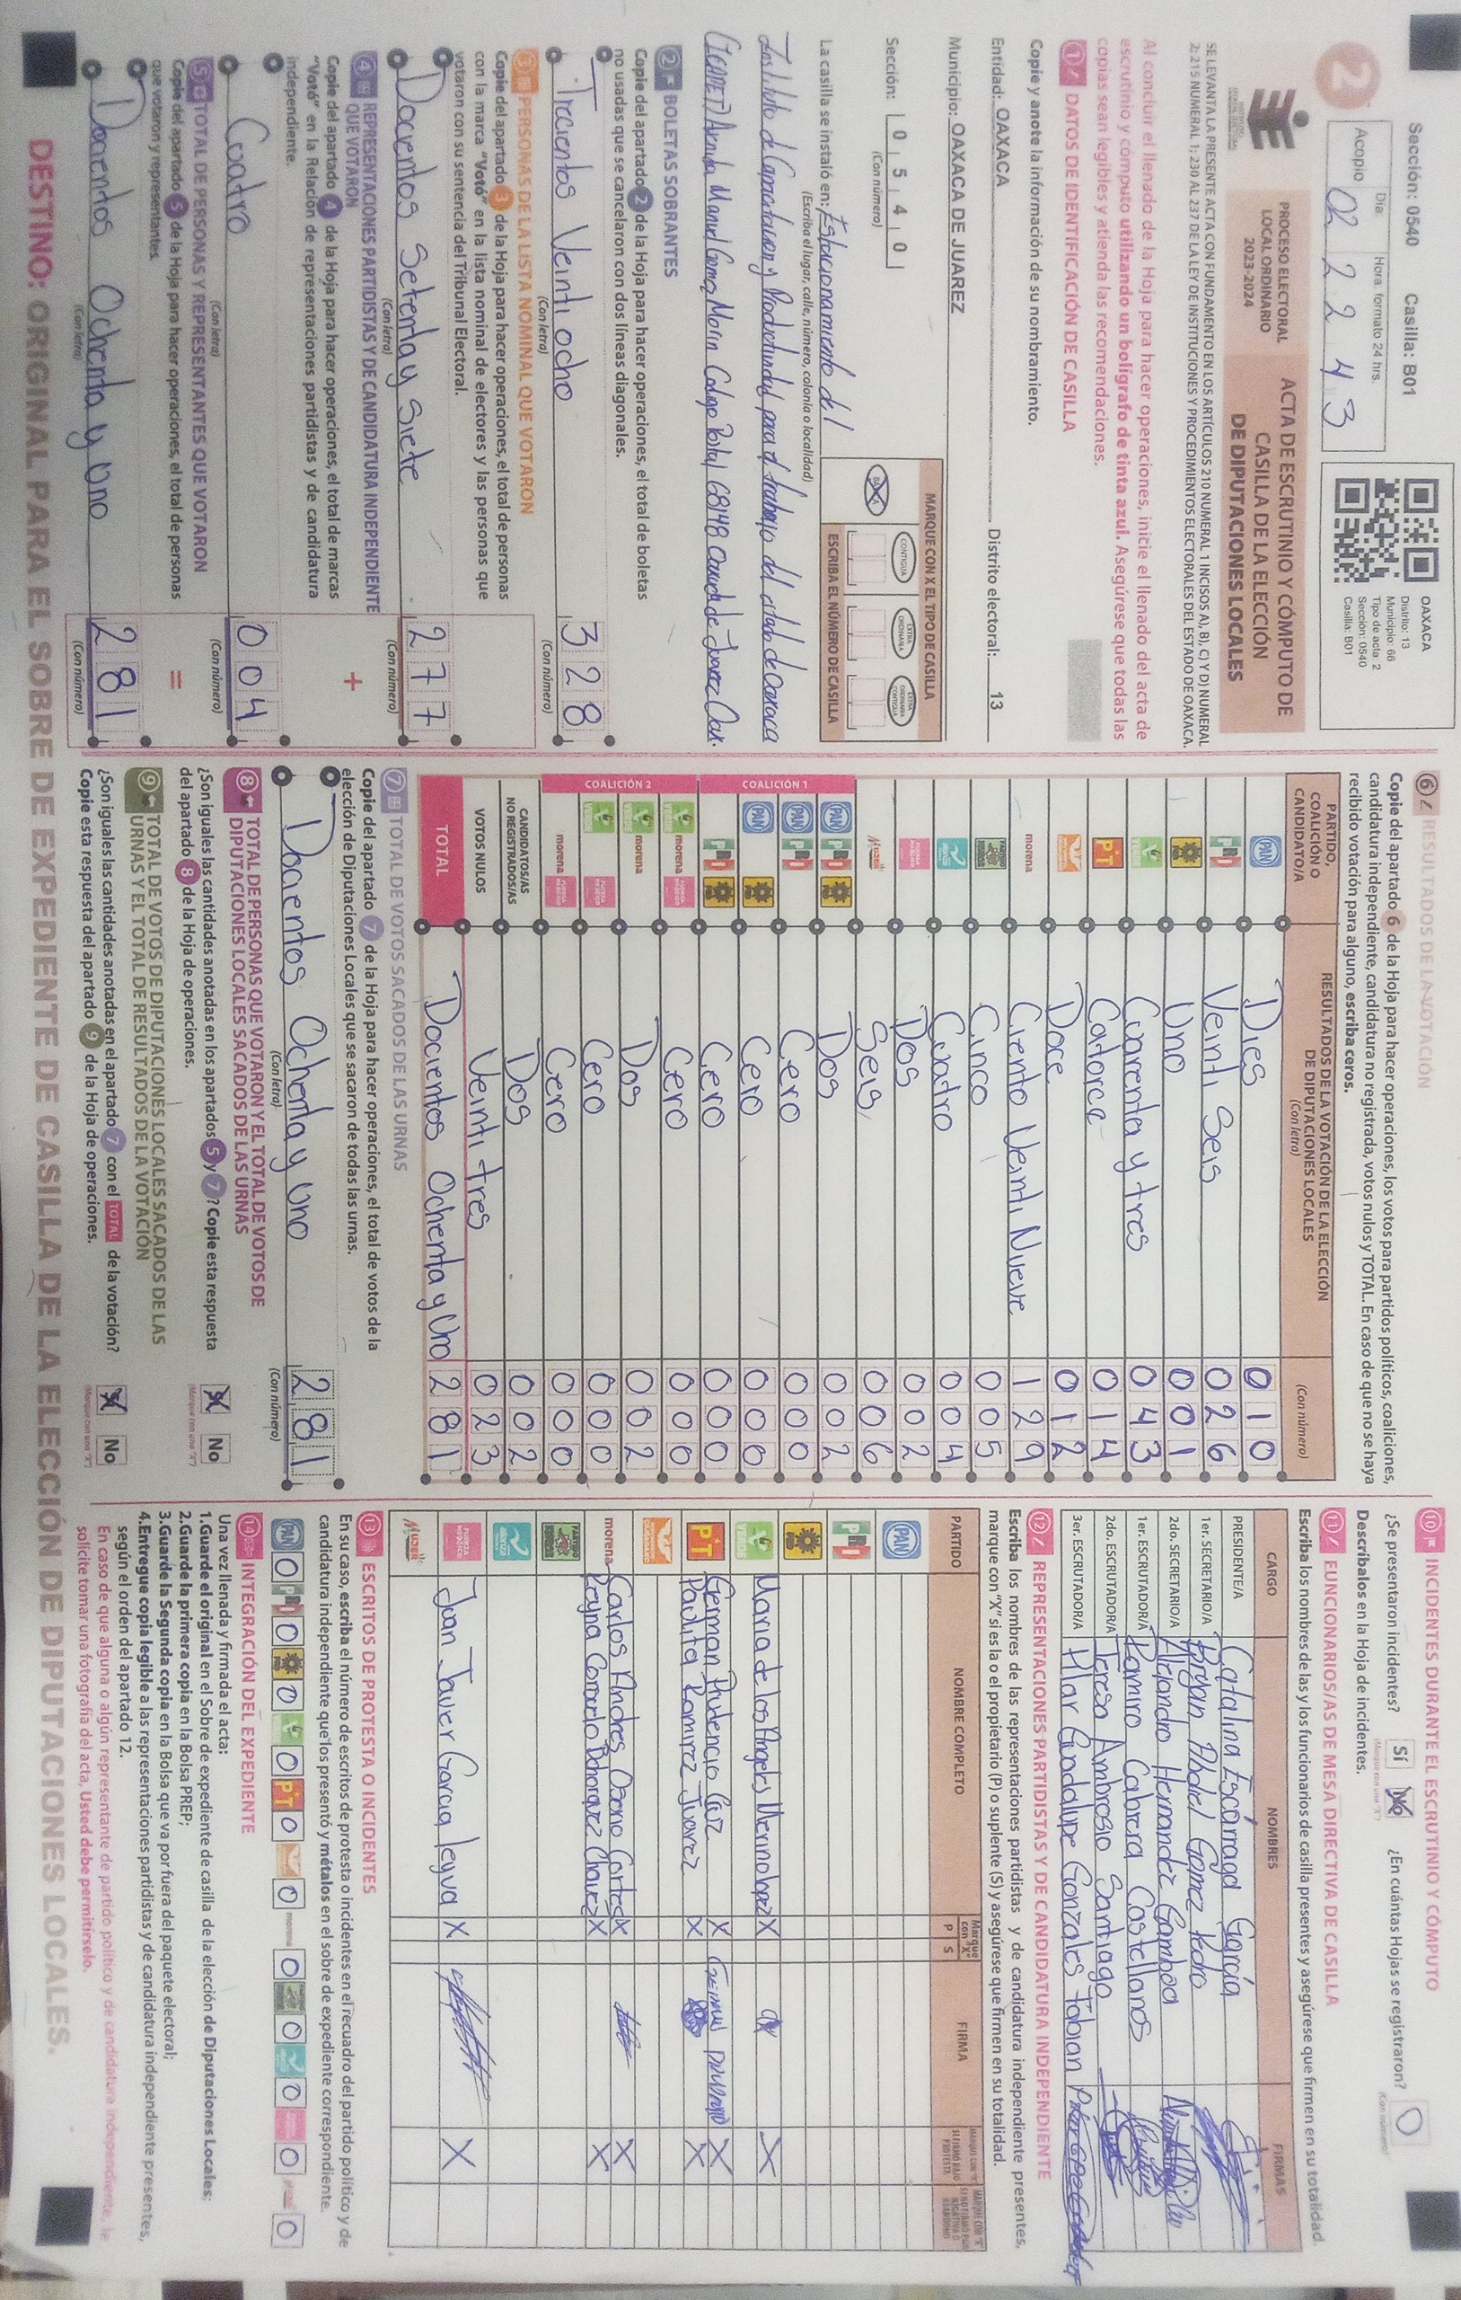 Sección: 0540 Casilla: B01
2
Día: Hora: formato 24 hrs.
Acopio 02 22 43
OAXACA
Distrito: 13
Municipio: 66
Tipo de acta 2
Sección: 0540
Casilla: B01
PROCESO ELECTORAL
LOCAL ORDINARIO
2023-2024
ACTA DE ESCRUTINIO Y CÓMPUTO DE
CASILLA DE LA ELECCIÓN
DE DIPUTACIONES LOCALES
SE LEVANTA LA PRESENTE ACTA CON FUNDAMENTO EN LOS ARTÍCULOS 210 NUMERAL 1 INCISOS A), B), C) Y D) NUMERAL
2; 215 NUMERAL 1; 230 AL 237 DE LA LEY DE INSTITUCIONES Y PROCEDIMIENTOS ELECTORALES DEL ESTADO DE OAXACA.
Al concluir el llenado de la Hoja para hacer operaciones, inicie el llenado del acta de
escrutinio y cómputo utilizando un bolígrafo de tinta azul. Asegúrese que todas las
copias sean legibles y atienda las recomendaciones.
1 DATOS DE IDENTIFICACIÓN DE CASILLA
Copie y anote la información de su nombramiento.
Entidad: OAXACA Distrito electoral: 13
Municipio: OAXACA DE JUAREZ
Sección: 0 5 4 0
(Con número)
MARQUE CON X EL TIPO DE CASILLA
BÁSICA CONTIGUA EXTRAORDINARIA EXTRAORDINARIA CONTIGUA
ESCRIBA EL NÚMERO DE CASILLA
La casilla se instaló en: Estacionamiento del
(Escriba el lugar, calle, número, colonia o localidad)
Instituto de Capacitacion y Productividad para el trabajo del estado de Oaxaca
(ICAPET) Avnda Manuel Gomez Morin Codigo Postal 68148 Oaxaca de Juarez Oax.
2 BOLETAS SOBRANTES
Copie del apartado 2 de la Hoja para hacer operaciones, el total de boletas
no usadas que se cancelaron con dos líneas diagonales.
Trecientos Veinti ocho 328
(Con letra) (Con número)
3 PERSONAS DE LA LISTA NOMINAL QUE VOTARON
Copie del apartado 3 de la Hoja para hacer operaciones, el total de personas
con la marca "Votó" en la lista nominal de electores y las personas que
votaron con su sentencia del Tribunal Electoral.
Docientos Setenta y Siete 277
(Con letra) (Con número)
4 REPRESENTACIONES PARTIDISTAS Y DE CANDIDATURA INDEPENDIENTE
QUE VOTARON
+
Copie del apartado 4 de la Hoja para hacer operaciones, el total de marcas
"Votó" en la Relación de representaciones partidistas y de candidatura
independiente.
Cuatro 004
(Con letra) (Con número)
5 TOTAL DE PERSONAS Y REPRESENTANTES QUE VOTARON
=
Copie del apartado 5 de la Hoja para hacer operaciones, el total de personas
que votaron y representantes.
Docientos Ochenta y Uno 281
(Con letra) (Con número)
6 RESULTADOS DE LA VOTACIÓN
Copie del apartado 6 de la Hoja para hacer operaciones, los votos para partidos políticos, coaliciones,
candidatura independiente, candidatura no registrada, votos nulos y TOTAL. En caso de que no se haya
recibido votación para alguno, escriba ceros.
PARTIDO,
COALICIÓN O
CANDIDATO/A
RESULTADOS DE LA VOTACIÓN DE LA ELECCIÓN
DE DIPUTACIONES LOCALES
(Con letra) (Con número)
PAN Dies 010
PRI Veinti Seis 026
Uno 001
VERDE Cuarenta y tres 043
PT Catorce 014
Doce 012
morena Ciento Veinti Nueve 129
Cinco 005
Cuatro 004
Dos 002
MUJER Seis 006
COALICIÓN 1
PAN PRI Dos 002
PAN PRI Cero 000
PAN Cero 000
PRI Cero 000
COALICIÓN 2
VERDE morena Cero 000
VERDE morena Dos 002
VERDE Cero 000
morena Cero 000
CANDIDATOS/AS
NO REGISTRADOS/AS Dos 002
VOTOS NULOS Veinti tres 023
TOTAL Docientos Ochenta y Uno 281
7 TOTAL DE VOTOS SACADOS DE LAS URNAS
Copie del apartado 7 de la Hoja para hacer operaciones, el total de votos de la
elección de Diputaciones Locales que se sacaron de todas las urnas.
Docientos Ochenta y Uno 281
(Con letra) (Con número)
8 TOTAL DE PERSONAS QUE VOTARON Y EL TOTAL DE VOTOS DE
DIPUTACIONES LOCALES SACADOS DE LAS URNAS
¿Son iguales las cantidades anotadas en los apartados 5 y 7? Copie esta respuesta
del apartado 8 de la Hoja de operaciones.
Sí No
(Marque con una "X")
9 TOTAL DE VOTOS DE DIPUTACIONES LOCALES SACADOS DE LAS
URNAS Y EL TOTAL DE RESULTADOS DE LA VOTACIÓN
¿Son iguales las cantidades anotadas en el apartado 7 con el TOTAL de la votación?
Copie esta respuesta del apartado 9 de la Hoja de operaciones.
Sí No
(Marque con una "X")
10 INCIDENTES DURANTE EL ESCRUTINIO Y CÓMPUTO
¿Se presentaron incidentes? Sí No ¿En cuántas Hojas se registraron? 0
(Marque con una "X") (Con número)
Descríbalos en la Hoja de incidentes.
11 FUNCIONARIOS/AS DE MESA DIRECTIVA DE CASILLA
Escriba los nombres de las y los funcionarios de casilla presentes y asegúrese que firmen en su totalidad.
CARGO NOMBRES FIRMAS
PRESIDENTE/A Catalina Escárraga García
1er. SECRETARIO/A Bryan Abdiel Gomez Pedro
2do. SECRETARIO/A Alejandro Hernandez Gamboa
1er. ESCRUTADOR/A Ramiro Cabrera Castellanos
2do. ESCRUTADOR/A Teresa Ambrosio Santiago
3er. ESCRUTADOR/A Pilar Guadalupe Gonzales Fabian
12 REPRESENTACIONES PARTIDISTAS Y DE CANDIDATURA INDEPENDIENTE
Escriba los nombres de las representaciones partidistas y de candidatura independiente presentes,
marque con "X" si es la o el propietario (P) o suplente (S) y asegúrese que firmen en su totalidad.
PARTIDO NOMBRE COMPLETO Marque con "X" P S FIRMA
PAN
PRI
VERDE Maria de los Angeles Merino lopez X X
PT German Prudencio Cruz X X
Paulita Ramirez Juarez X X
morena Carlos Andres Osorio Cortes X X
Reyna Consuelo Bohorquez Chavez X X
Juan Javier Garcia Leyva X X
MUJER
13 ESCRITOS DE PROTESTA O INCIDENTES
En su caso, escriba el número de escritos de protesta o incidentes en el recuadro del partido político y de
candidatura independiente que los presentó y métalos en el sobre de expediente correspondiente.
PAN 0 PRI 0 0 0 PT 0 0 morena 0 0 0 0 0
14 INTEGRACIÓN DEL EXPEDIENTE
Una vez llenada y firmada el acta:
1.Guarde el original en el Sobre de expediente de casilla de la elección de Diputaciones Locales;
2.Guarde la primera copia en la Bolsa PREP;
3.Guarde la Segunda copia en la Bolsa que va por fuera del paquete electoral;
4.Entregue copia legible a las representaciones partidistas y de candidatura independiente presentes,
según el orden del apartado 12.
En caso de que alguna o algún representante de partido político y de candidatura independiente, le
solicite tomar una fotografía del acta, Usted debe permitírselo.
DESTINO: ORIGINAL PARA EL SOBRE DE EXPEDIENTE DE CASILLA DE LA ELECCIÓN DE DIPUTACIONES LOCALES.